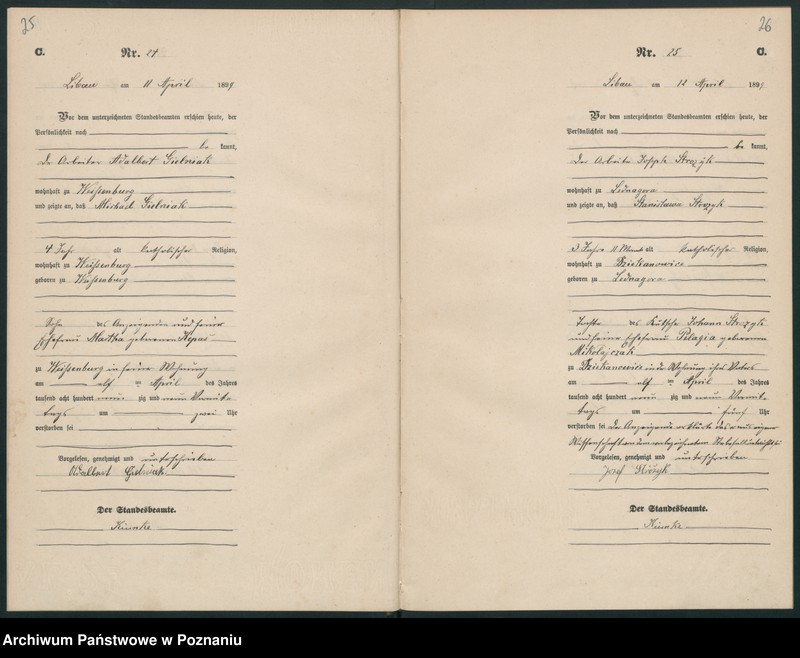 25
C.
Nr. 24
Libau am 11 April 1899
Vor dem unterzeichneten Standesbeamten erschien heute, der
Persönlichkeit nach
be kannt,
Der Arbeiter Adalbert Gielniak
wohnhaft zu Weissenburg
und zeigte an, daß Michael Gielniak
4 Jahr alt katholischer Religion,
wohnhaft zu Weissenburg
geboren zu Weissenburg
Sohn des Anzeigenden und seiner
Ehefrau Martha geborenen Kepas
zu Weissenburg in seiner Wohnung
am elf ten April des Jahres
tausend acht hundert neun zig und neun Vormit-
tags um zwei Uhr
verstorben sei
Vorgelesen, genehmigt und unterschrieben
Adalbert Gielniak
Der Standesbeamte.
26
Nr. 25
C.
Libau am 12 April 1899
Vor dem unterzeichneten Standesbeamten erschien heute, der
Persönlichkeit nach
be kannt,
Der Arbeiter Joseph Strozyk
wohnhaft zu Lednagora
und zeigte an, daß Stanislawa Strozyk
3 Jahre 11 Monat alt katholischer Religion,
wohnhaft zu Dziekanowice
geboren zu Lednagora
Tochter des Kutscher Johann Strozyk
und seiner Ehefrau Pelagia geborenen
Mikolajczak
zu Dziekanowice in der Wohnung ihres Vaters
am elf ten April des Jahres
tausend acht hundert neun zig und neun Vormit-
tags um fünf Uhr
verstorben sei der Anzeigende erklärte dass er aus eigener
Wissenschaft von dem
Vorgelesen, genehmigt und unterschrieben
Jozef Strozyk
Der Standesbeamte.
Archiwum Państwowe w Poznaniu